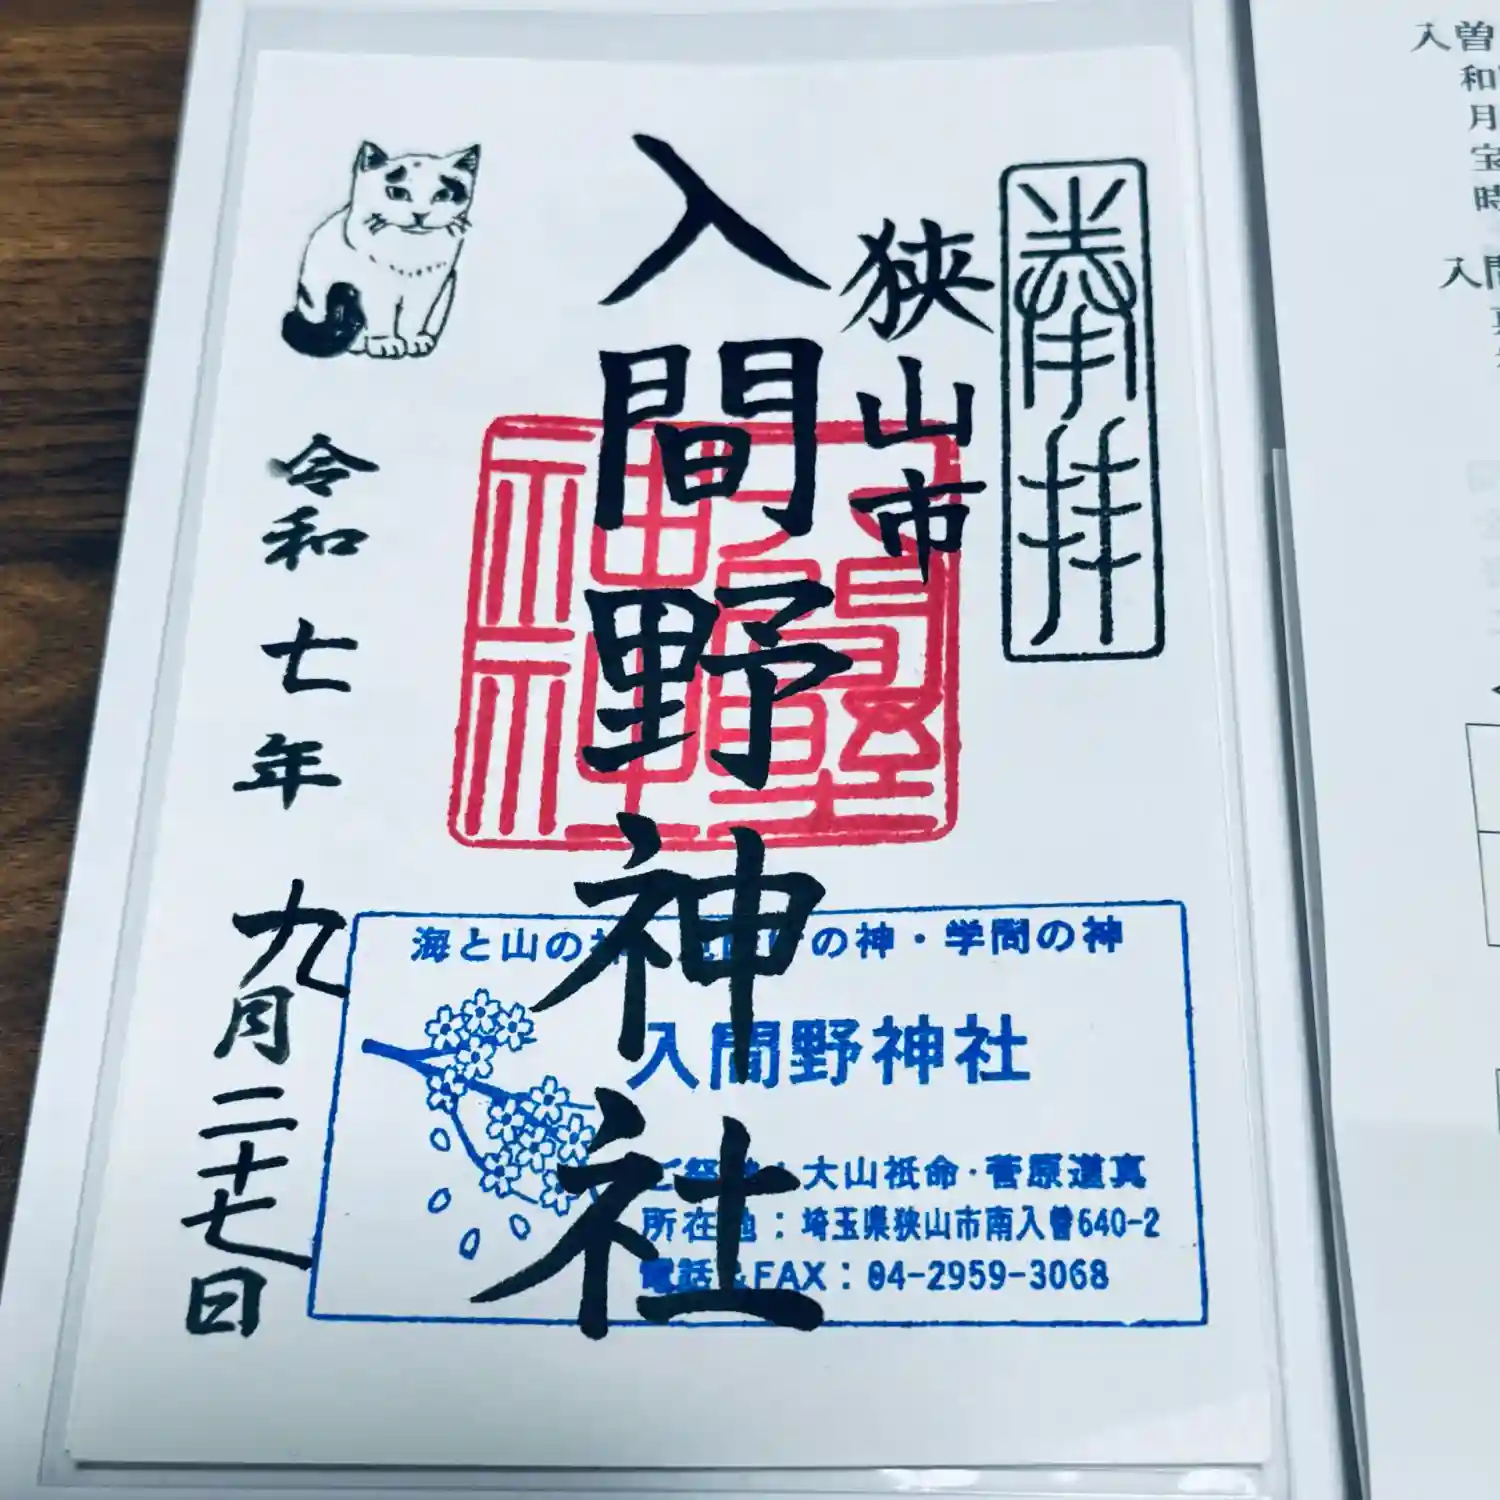 奉拝
狭山市
入間野神社
令和七年九月二十七日
海と山の神 の神・学問の神
入間野神社
大山祇命・菅原道真
所在地：埼玉県狭山市南入曽640-2
電話&FAX：04-2959-3068
入曽
和
月
時
入間